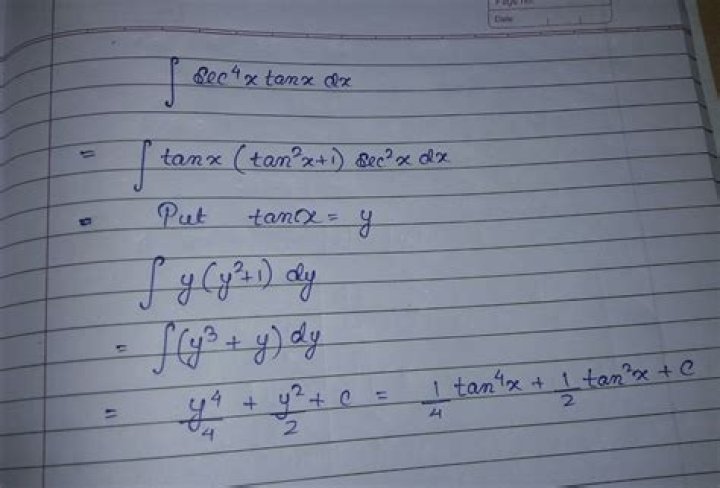 Page No.
Date
∫ sec⁴x tanx dx
= ∫ tanx (tan²x+1) sec²x dx
= Put tanx = y
∫ y(y²+1) dy
= ∫(y³ + y) dy
= y⁴/4 + y²/2 + c = 1/4 tan⁴x + 1/2 tan²x + c